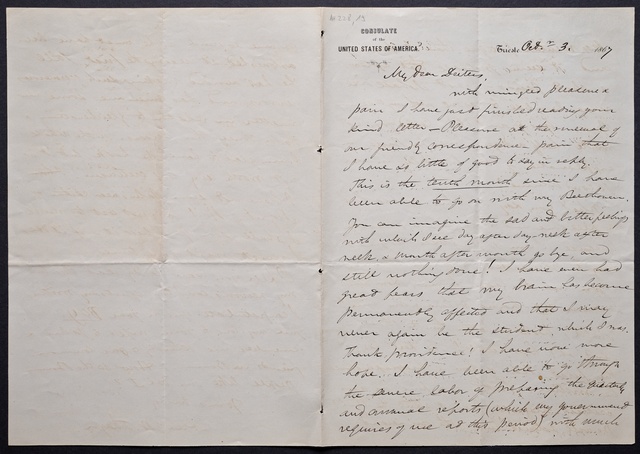 CONSULATE
of the
UNITED STATES OF AMERICA.
Trieste Oct. 3. 1867
My dear Deiters,
with mingled pleasure &
pain I have just finished reading your
kind letter — Pleasure at the renewal of
our friendly correspondence — pain that
I have so little of good to say in reply.
This is the tenth month since I have
been able to go on with my Beethoven.
You can imagine the sad and bitter feelings
with which I see day after day, week after
week, & month after month go bye, and
still nothing done! I have even had
great fears that my brain has become
permanently affected and that I may
never again be the student which I was.
Thank providence! I have now more
hope. I have been able to go through
the severe labor of preparing the quarterly
and annual reports (which my government
requires of me at this period) with much